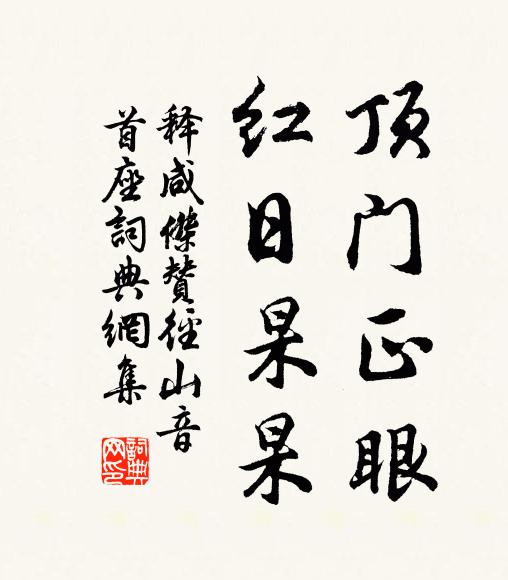 顶门正眼
红日杲杲
释咸傑赞徑山音
首座詞典網集
詞典网印